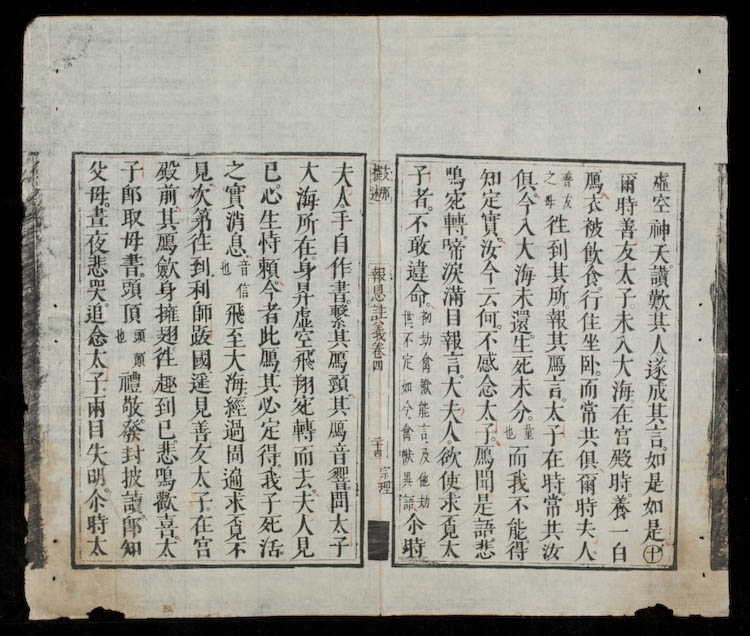 虛空神天讚歎其人遂成其言。如是如是㊉
爾時善友太子未入大海。在宮殿時。養一白
鴈。衣被飲食。行住坐卧。而常共俱。爾時夫人
善友之母徃到其所。報其鴈言。太子在時。常共汝
俱。今入大海未還。生死未分。量也而我不能得
知定實。汝今云何。不感念太子。鴈聞是語。悲
鳴宛轉。啼淚滿目。報言。大夫人。欲使求覔太
子者。不敢違命。初劫禽獸能言。及他劫世。不定如今禽獸異語尒時
報恩註義卷四
二十四
宗理
夫人。手自作書。繫其鴈頸。其鴈音響。問太子
大海所在。身昇虛空。飛翔宛轉而去。夫人見
已。心生恃賴。今者此鴈。其必定得。我子死活
之實消息。音信也飛至大海。經過周遍。求覔不
見。次第徃到利師跋國。遥見善友太子。在宮
殿前。其鴈歛身擁翅。徃趣到已。悲鳴歡喜。太
子即取母書。頭頂頭顛也禮敬。發封披讀。即知
父母。晝夜悲哭。追念太子。兩目失明。尒時太